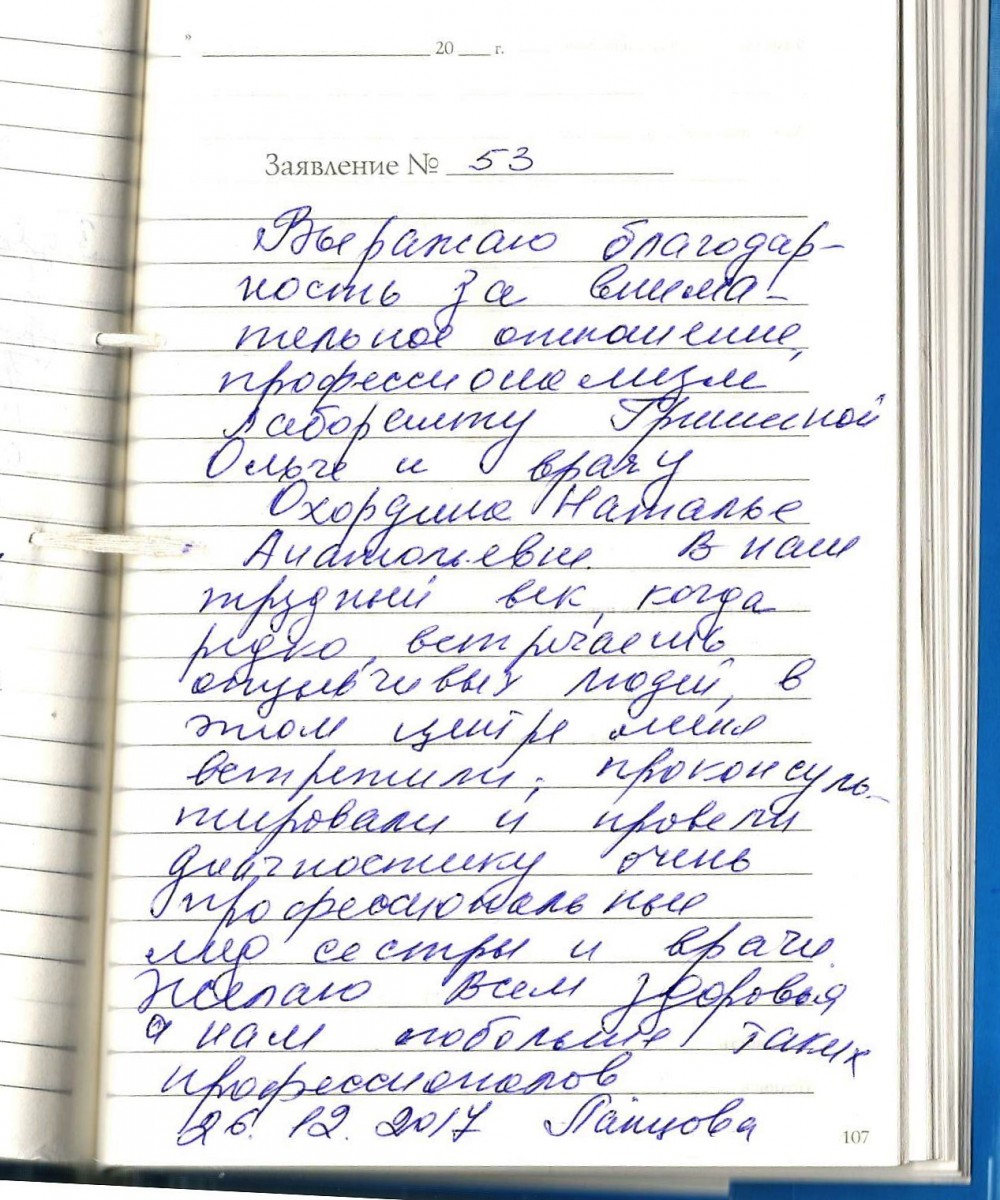 " 20 г.
Заявление № 53
Выражаю благодар-
ность за внима-
тельное отношение,
профессионализм
лаборанту Гришиной
Ольге и врачу
Охордина Наталье
Анатольевне. В наш
трудный век, когда
редко, встречаешь
отзывчивых людей, в
этом центре меня
встретили, проконсуль-
тировали и провели
диагностику очень
профессиональные
мед сестры и врачи.
Желаю Всем здоровья
а нам побольше таких
профессионалов
26. 12. 2017
107